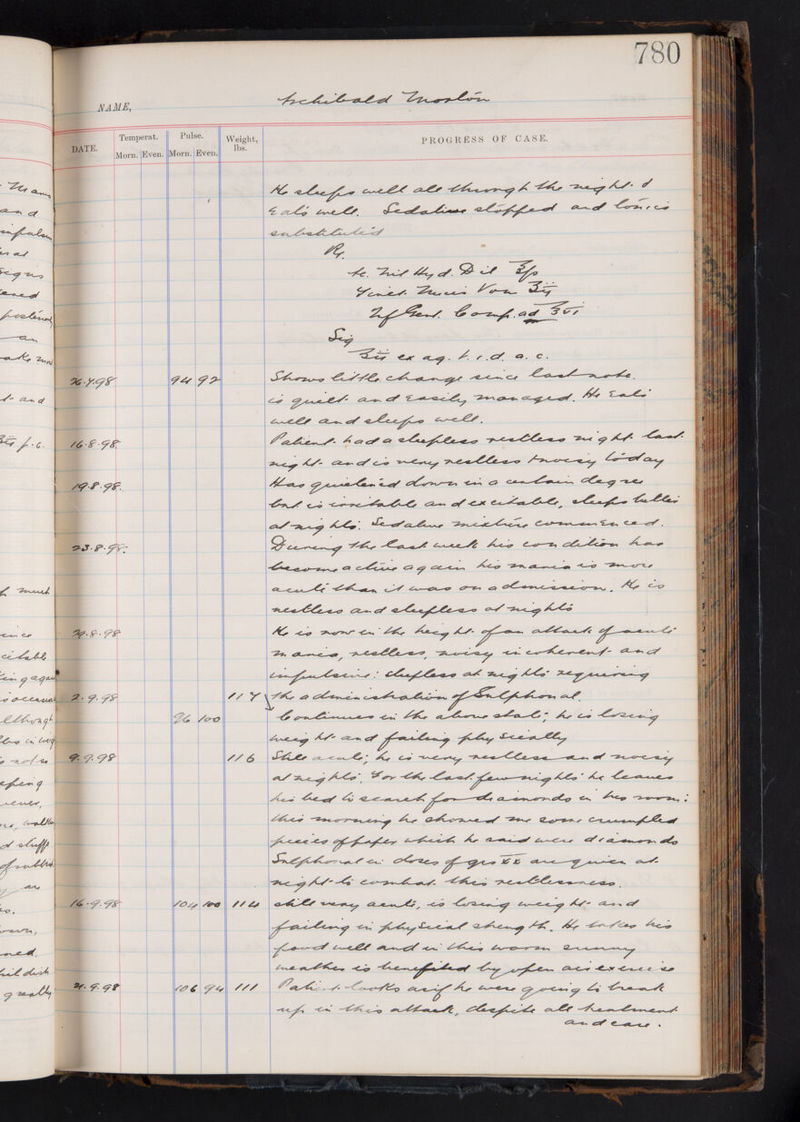 780
NAME, Archibald Morton
DATE. Temperat. Pulse. Weight, lbs. PROGRESS OF CASE.
Morn. Even. Morn. Even.
He sleeps well all through the night &
eats well. Sedatives stopped and tonics
substituted
Rx.
Ac. Nit Hyd. Dil ʒſs
Tinct. Nucis Vom ʒii
Inf Gent. Comp. ad ℥vi
Sig
ʒii ex aq. t.i.d. a.c.
26.7.98 94 92 Shows little change since last note.
is quiet and easily managed. He eats
well and sleeps well.
16.8.98. Patient had a sleepless restless night last
night and is very restless & noisy today
19.8.98. Has quietened down in a certain degree
but is irritable and excitable, sleeps better
at nights. Sedative mixture commenced.
23.8.98. During the last week his condition has
become active again his mania is more
acute than it was on admission. He is
restless and sleepless at nights
29.8.98 He is now in the height of an attack of acute
mania, restless, noisy incoherent and
impulsive: sleepless at nights requiring
2.9.98 117 the administration of Sulphonal.
96 100 Continues in the above state; he is losing
weight and failing physically
9.9.98 116 Still acute; he is very restless and noisy
at nights. For the last few nights he leaves
his bed to search for diamonds in his room:
this morning he showed me some crumpled
pieces of paper which he said were diamonds
Sulphonal in doses of grs xx are given at
night to combat this restlessness.
16.9.98 104 100 114 still very acute, is losing weight and
failing in physical strength. He takes his
food well and in this warm sunny
weather is benefited by open air exercise
21.9.98 106 94 111 Patient looks as if he were going to break
up in this attack, despite all treatment
and care.